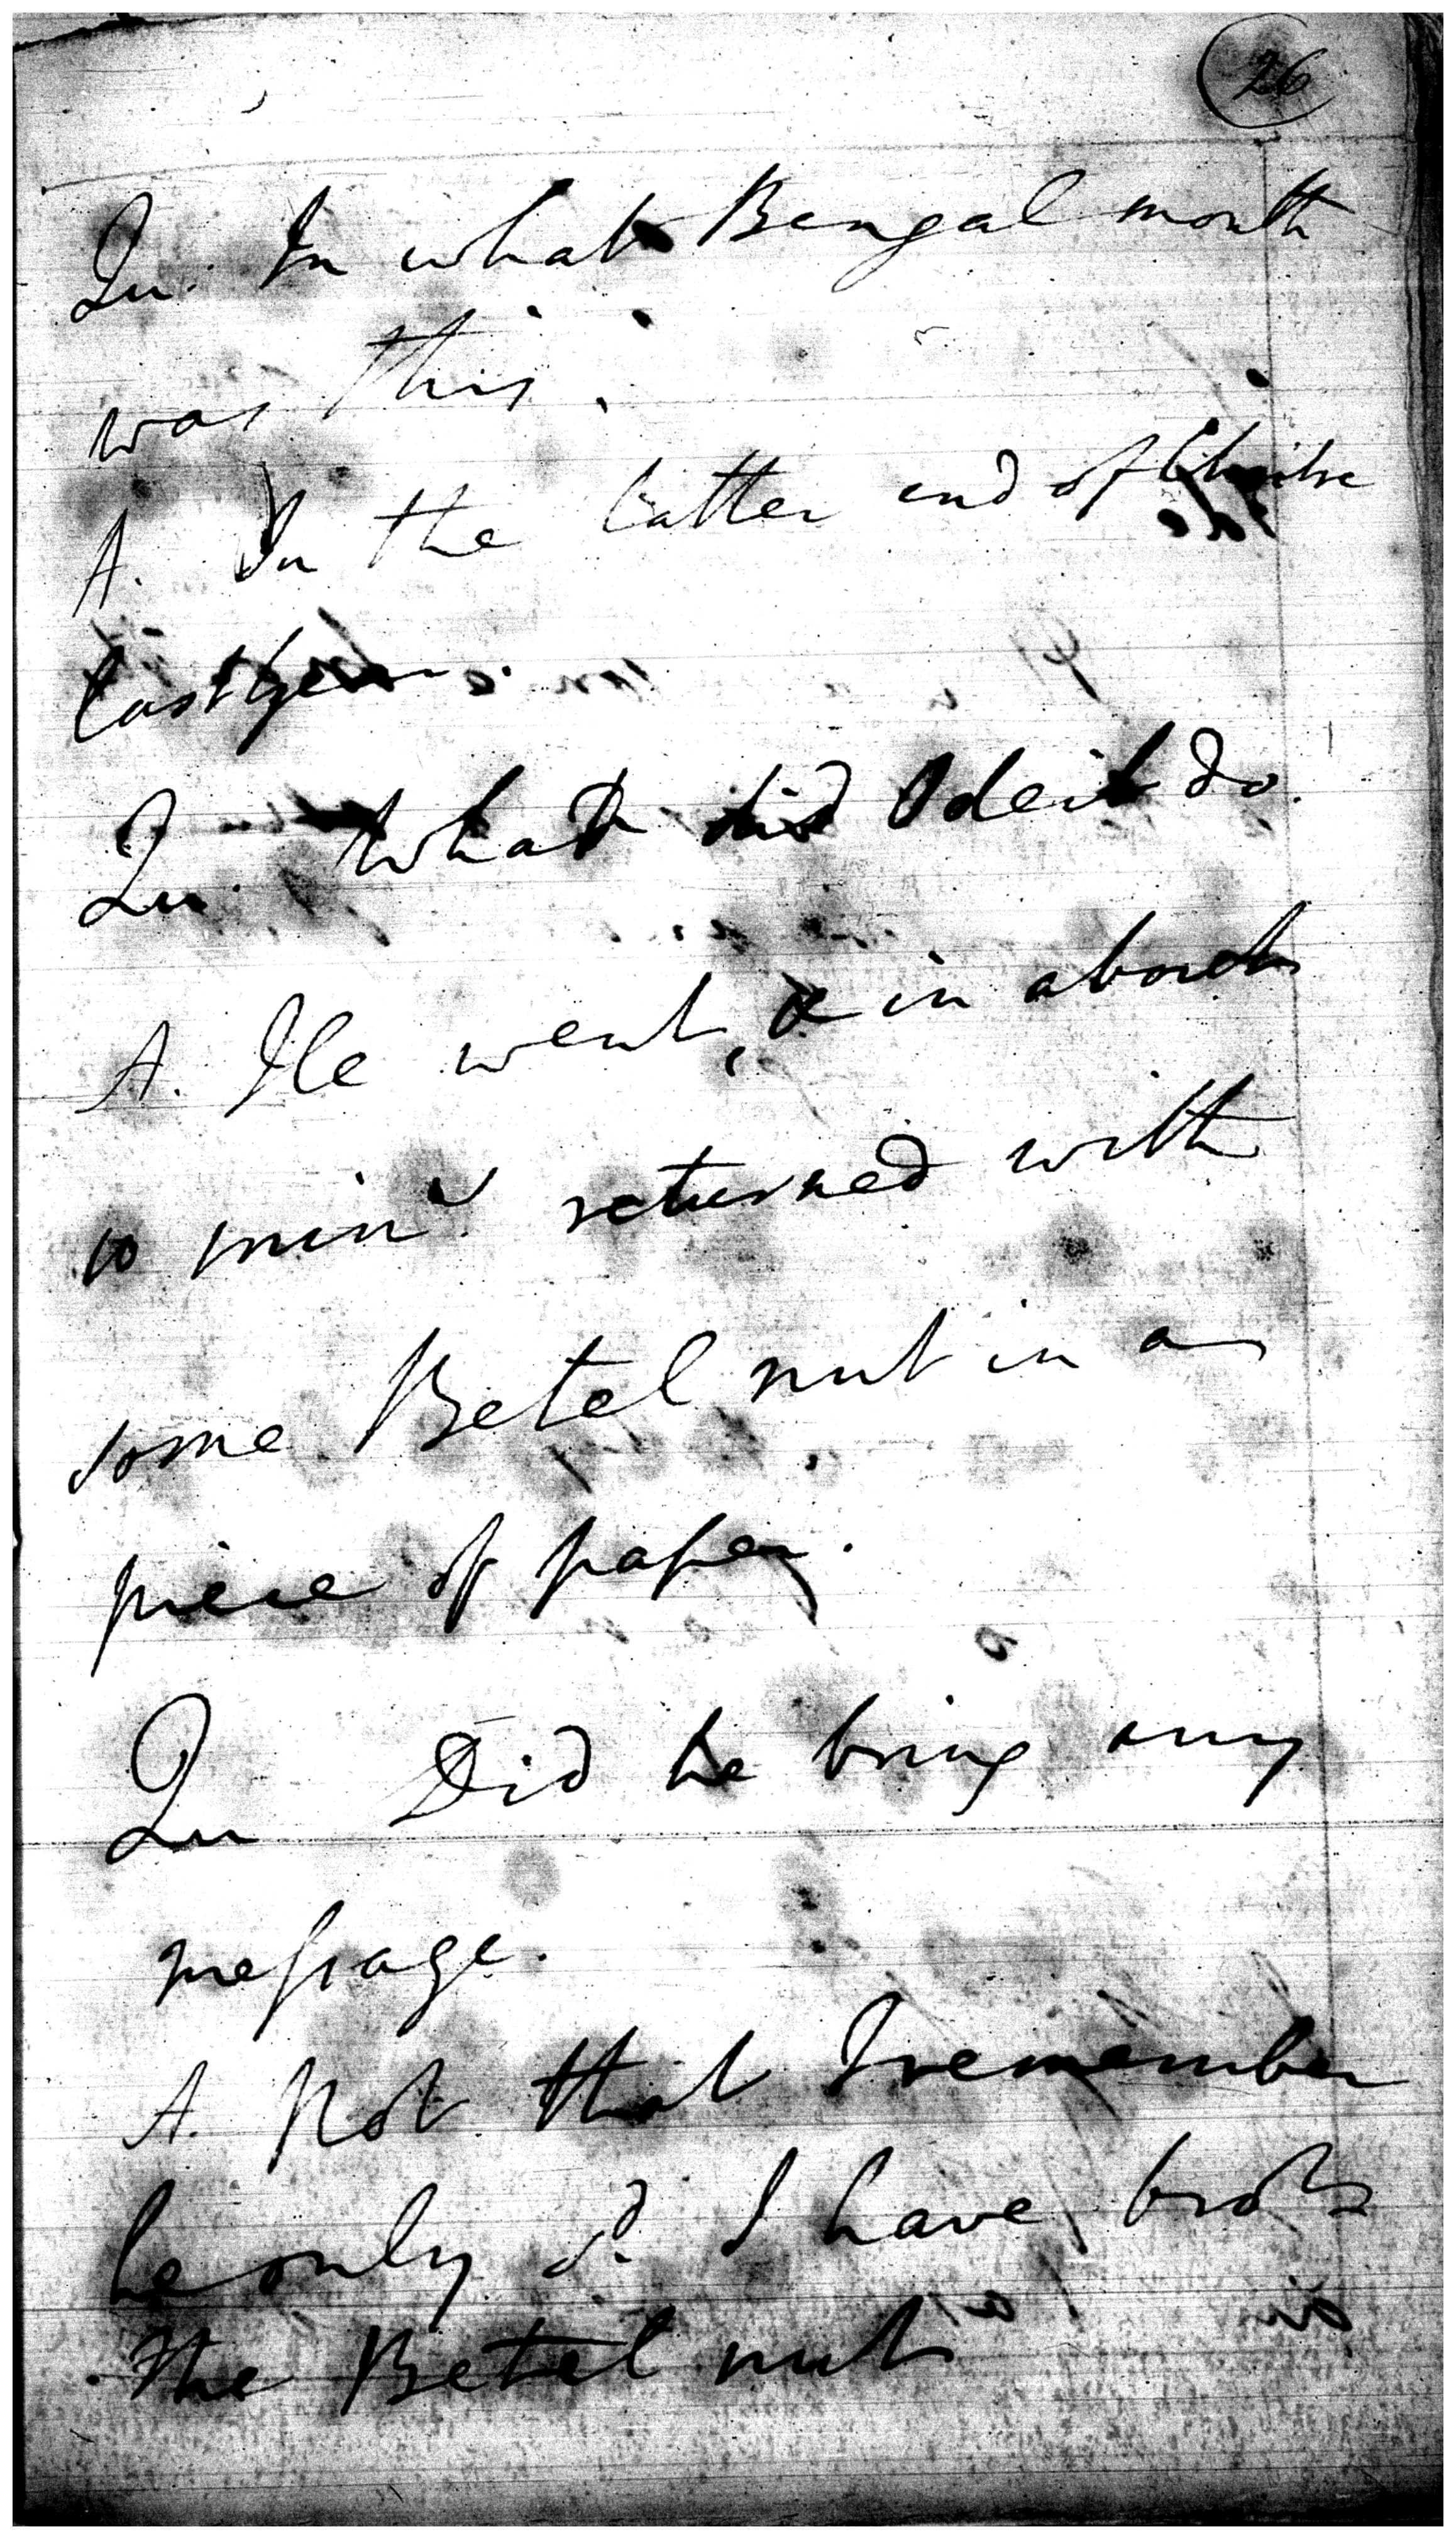 26
Qu. In what Bengal month
was this.
A. In the latter end of Choitre
last year.
Qu. What did Odeit do.
A. He went, & in about
10 mins. returned with
some Betel nut in a
piece of paper.
Qu Did he bring any
message.
A. Not that I remember
he only sd. I have brot
the Betel nut